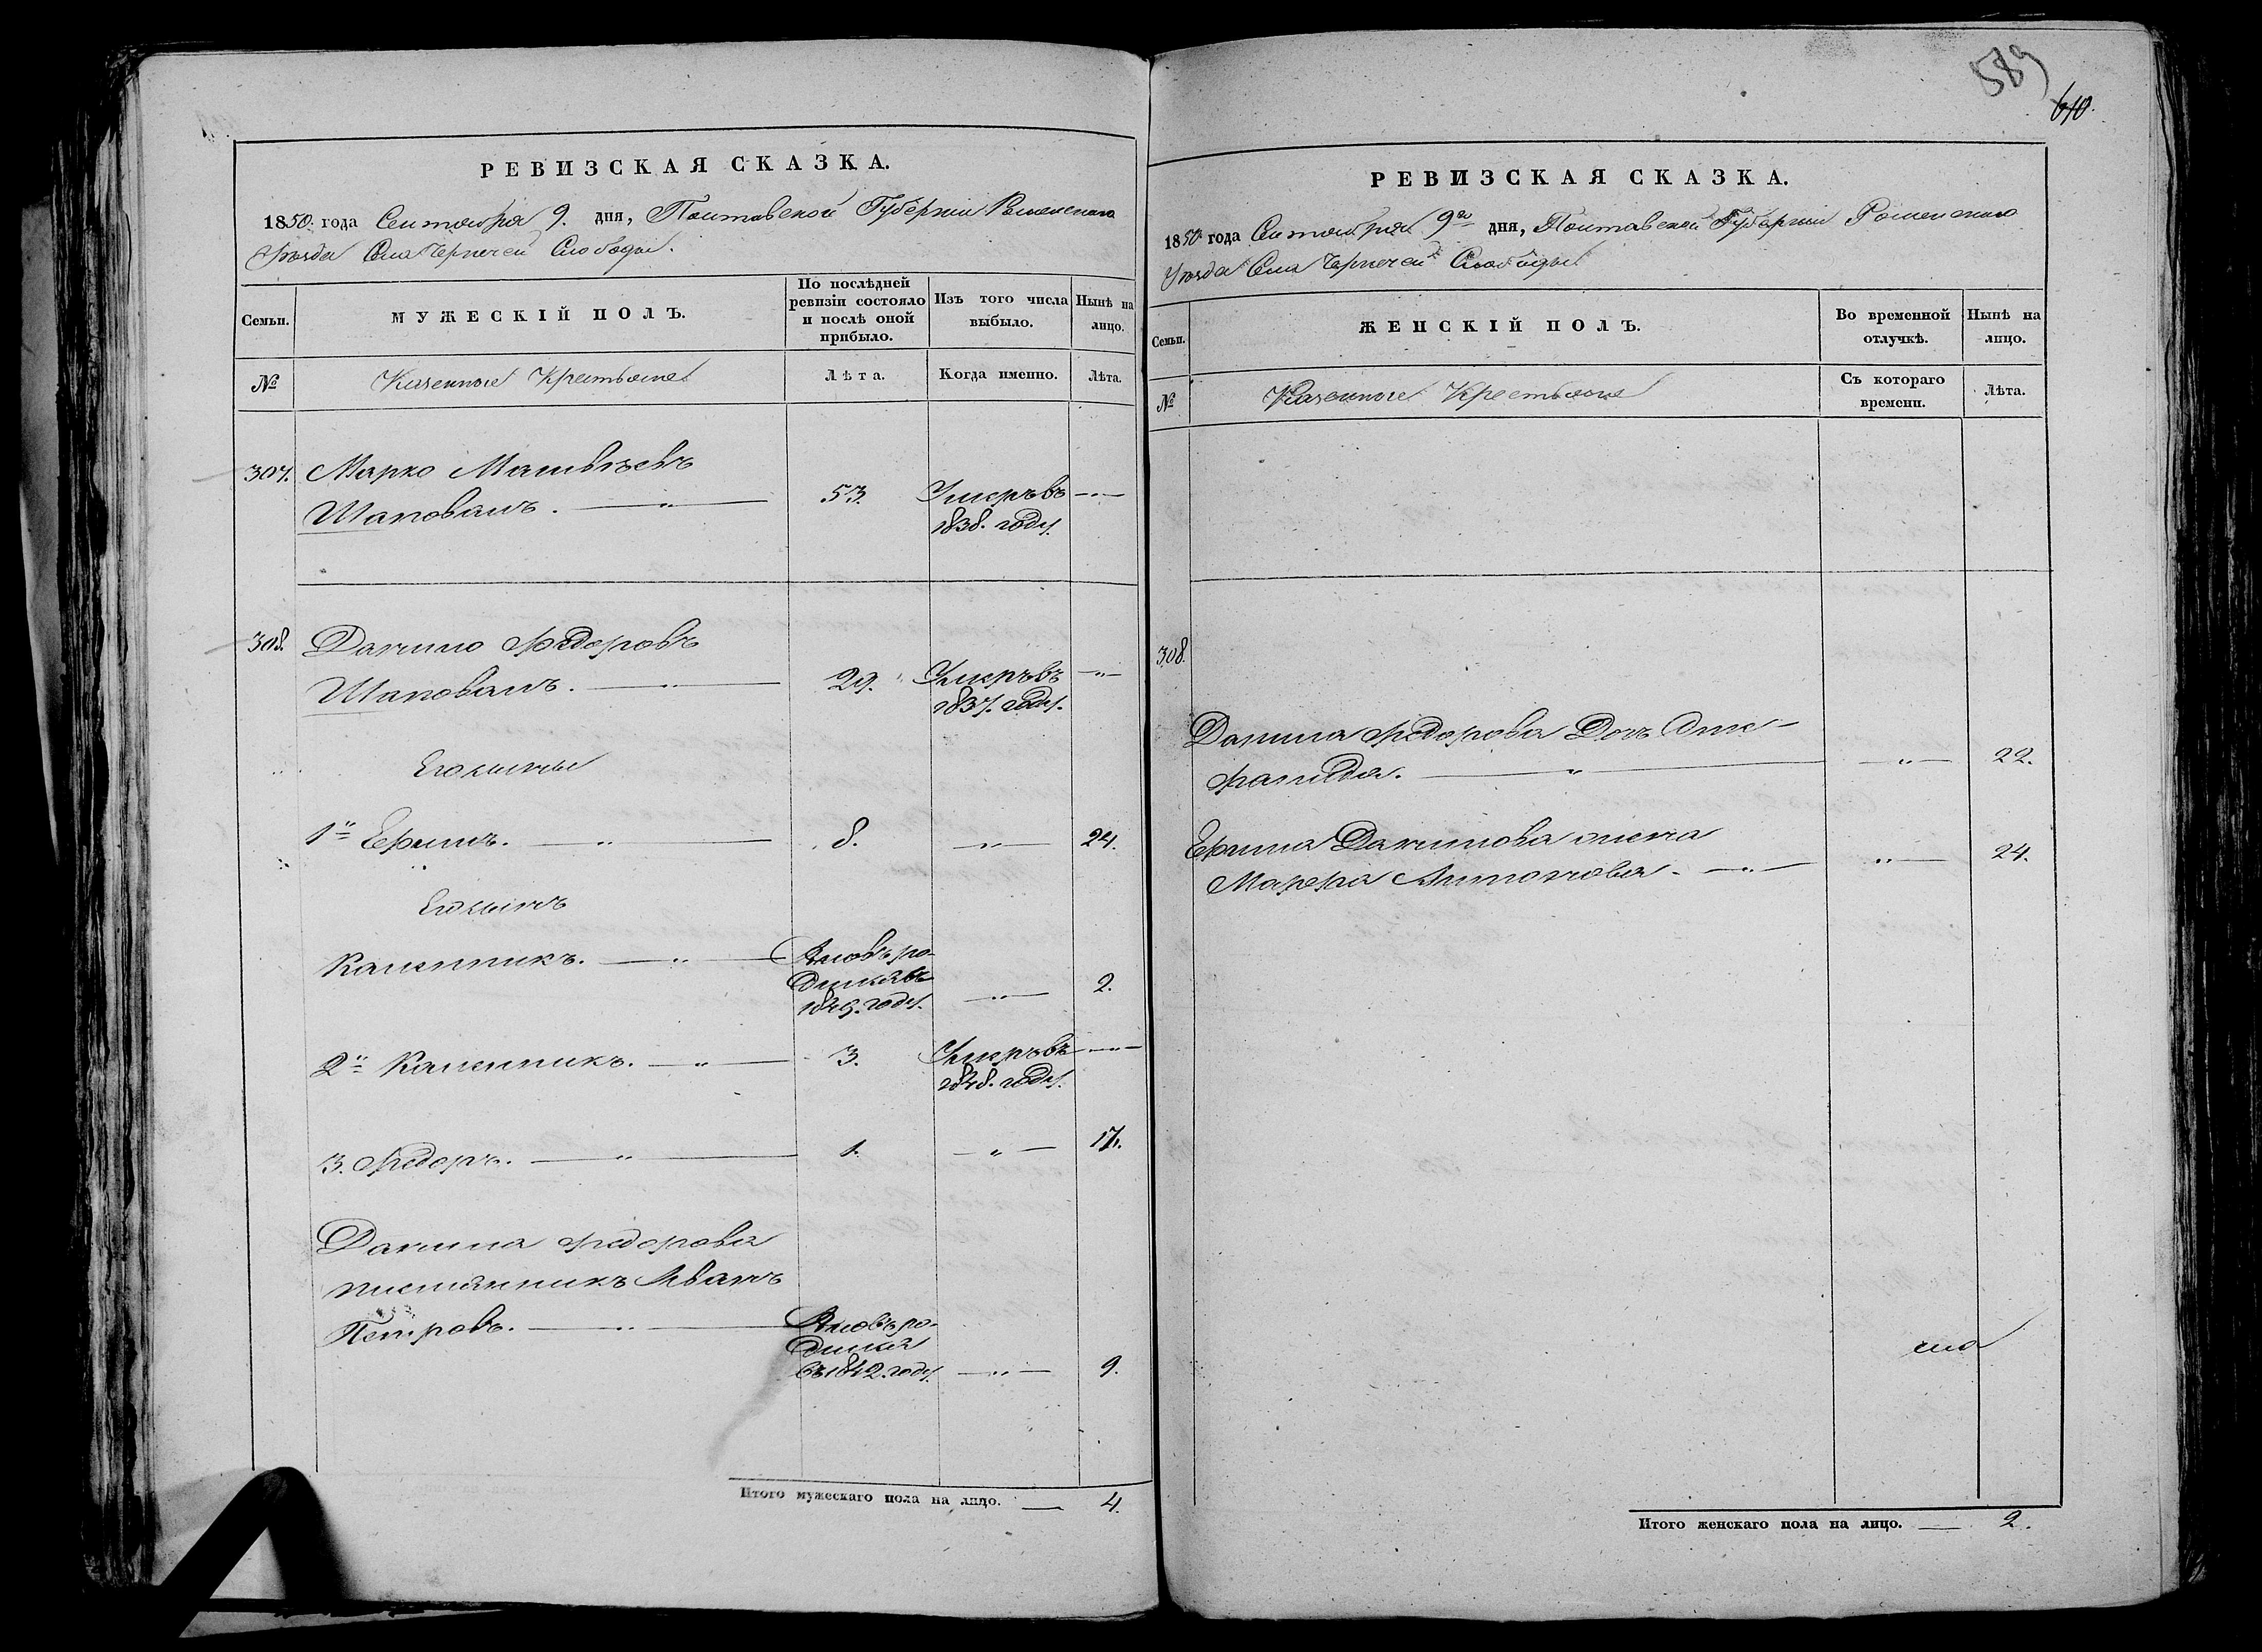 589
610.
РЕВИЗСКАЯ СКАЗКА.
1850. года Сентября 9. дня, Полтавской Губерніи Роменскаго
Уѣзда Села Чернечей Слободы.
Семьи. МУЖЕСКІЙ ПОЛЪ. По послѣдней ревизіи состояло и послѣ оной прибыло. Изъ того числа выбыло. Нынѣ на лицо.
№ Казенные Крестьяне Лѣта. Когда именно. Лѣта.
307. Марко Матвѣевъ
Шаповалъ. 53. Умеръ въ
1838. году.
308. Данило Федоровъ
Шаповалъ. 29. Умеръ въ
1837. году.
Его сыны
1й Ефимъ. 8. 24.
Его сынъ
Каленникъ. Вновь ро-
дился въ
1849. году. 2.
2й Каленникъ. 3. Умеръ въ
1848. году.
3. Федоръ. 1. 17.
Данила Федорова
племянникъ Иванъ
Петровъ. Вновь ро-
дился
въ 1842. году. 9.
Итого мужескаго пола на лицо. 4.
РЕВИЗСКАЯ СКАЗКА.
1850 года Сентября 9го дня, Полтавской Губерніи Роменскаго
Уѣзда Села Чернечей Слободы
Семьи. ЖЕНСКІЙ ПОЛЪ. Во временной отлучкѣ. Нынѣ на лицо.
№ Казенные Крестьяне Съ котораго времени. Лѣта.
308.
Данила Федорова Дочь
22.
Ефима Данилова жена
Марфа Антонова 24.
Итого женскаго пола на лицо. 2.